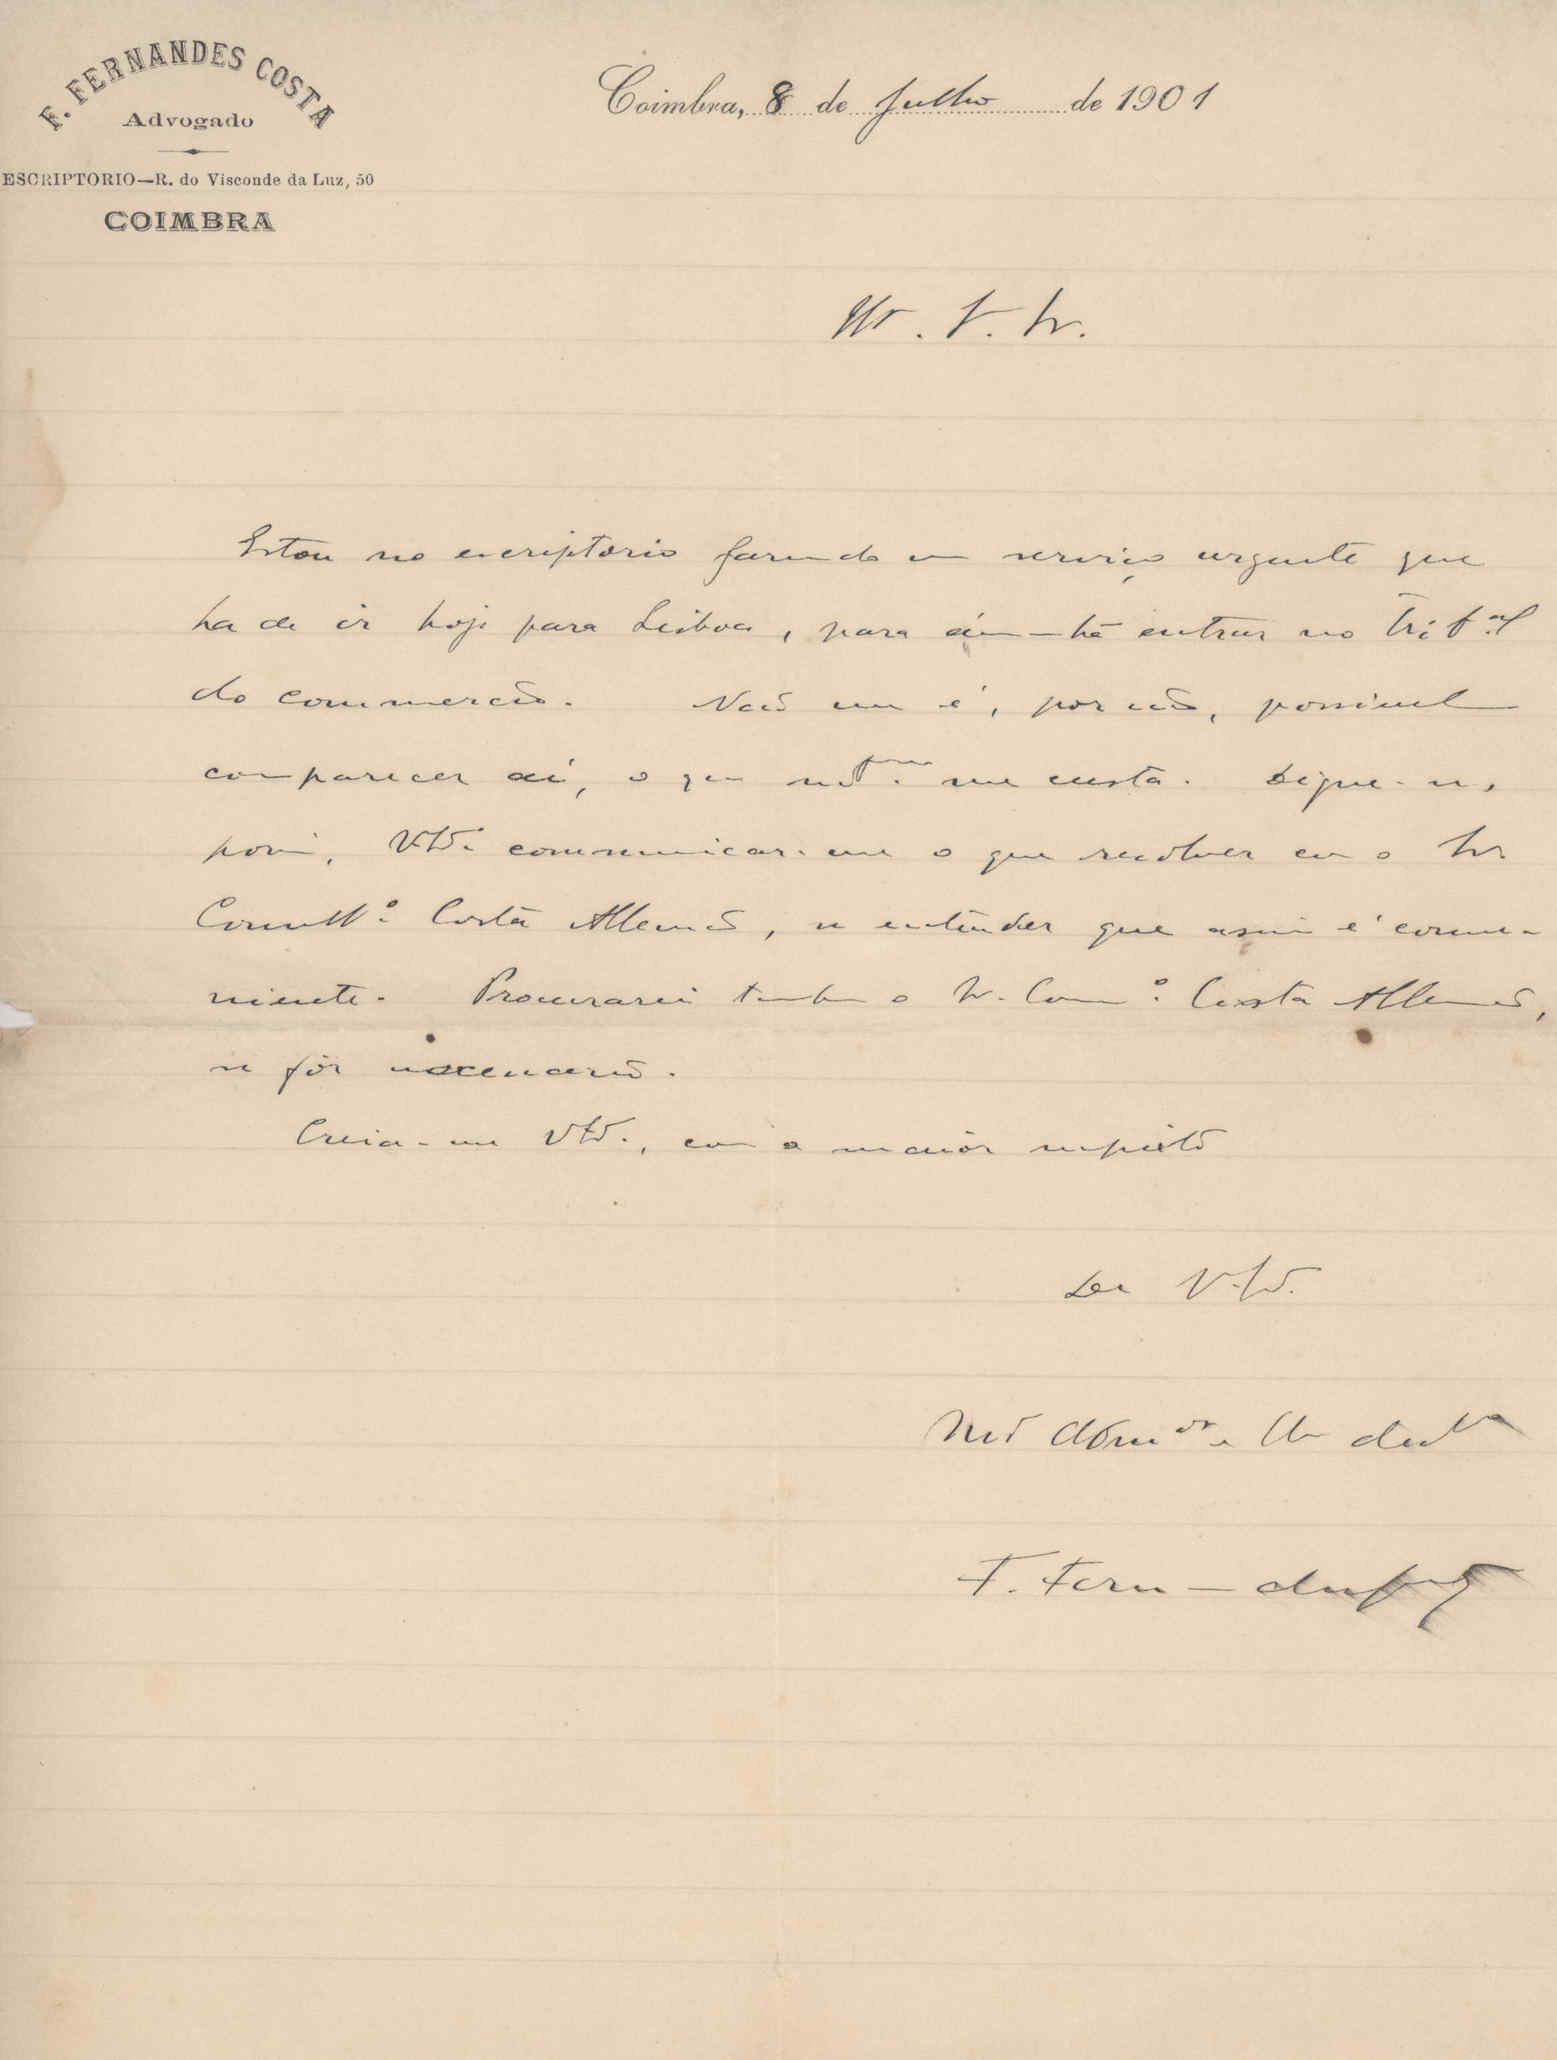 F. FERNANDES COSTA
Advogado
ESCRIPTORIO—R. do Visconde da Luz, 50
COIMBRA
Coimbra, 8 de Julho de 1901
Estou no escriptorio fazendo um serviço urgente que
ha de ir hoje para Lisboa, para ámanhã entrar no Trib.al
do commercio. Não me é, por isso, possivel
comparecer ahi, o que mt.mo me custa. Digne-se,
porem, V. Ex.ª communicar-me o que resolver com o Sr.
Conselh.º Costa Allemão, se entender que assim é conve-
niente. Procurarei tambem o Sr. Cons.º Costa Allemão,
se fôr necessario.
Creia-me V. Ex.ª, com o maior respeito
De V. Ex.ª
F. Fernandes Costa